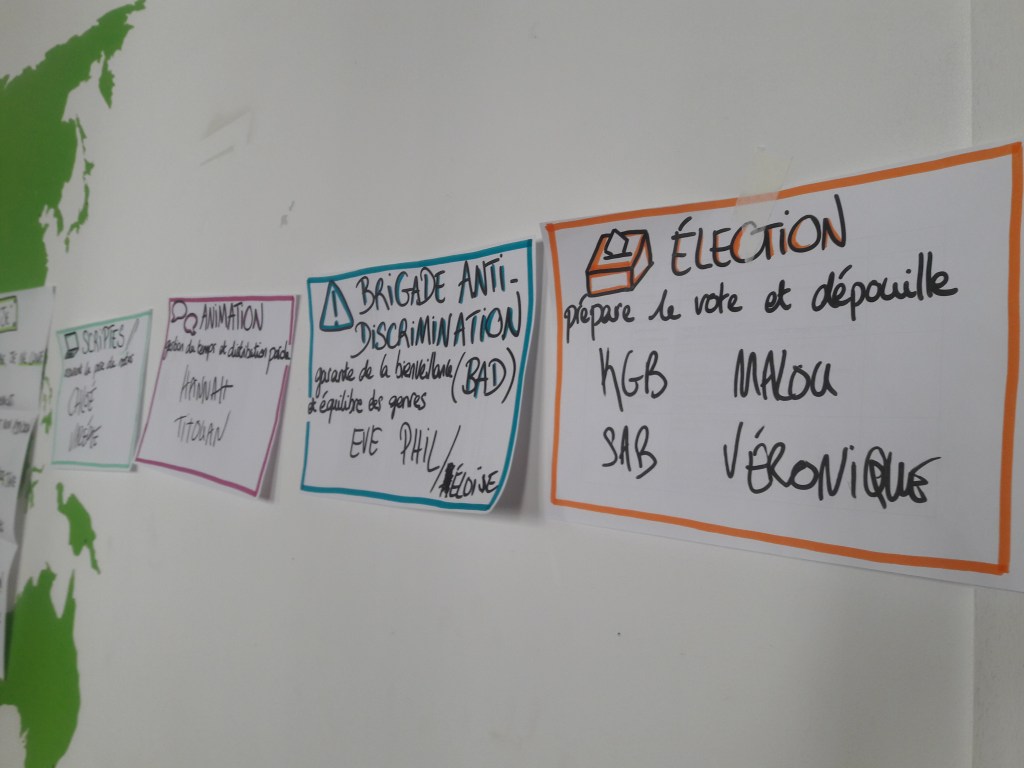 SCRIPTES/
ANIMATION
gestion du temps et distribution parole
HANNAH
TITOUAN
BRIGADE ANTI-
DISCRIMINATION
garante de la bienveillante (BAD)
et équilibre des genres
EVE PHIL/
ÉLOISE
ÉLECTION
prépare le vote et dépouille
KGB MALOU
SAB VÉRONIQUE